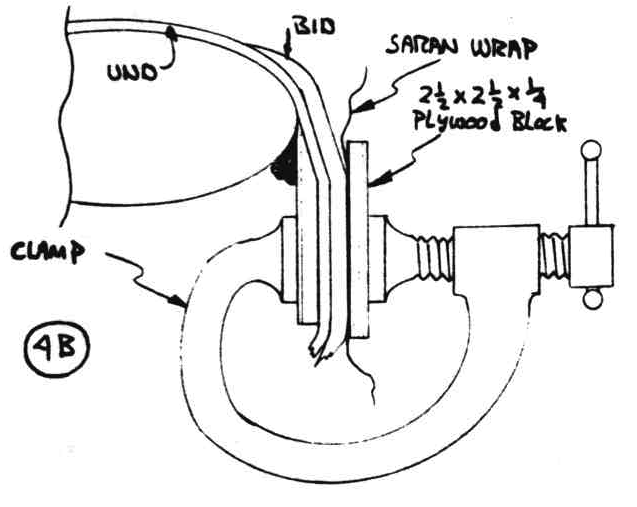 BID
SARAN WRAP
UND
2 1/2 x 2 1/2 x 1/4
Plywood Block
CLAMP
4B